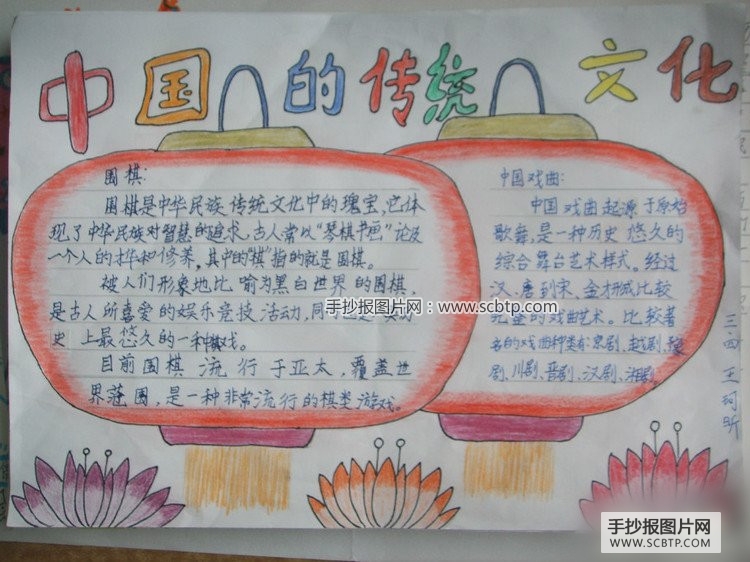 中国的传统文化
围棋：
围棋是中华民族传统文化中的瑰宝，它体
现了中华民族对智慧的追求，古人常以“琴棋书画”论及
一个人的才华和修养，其中的“棋”指的就是围棋。
被人们形象地比喻为黑白世界的围棋，
是古人所喜爱的娱乐竞技活动，同
史上最悠久的一种棋戏。
目前围棋流行于亚太，覆盖世
界范围，是一种非常流行的棋类游戏。
中国戏曲：
中国戏曲起源于原始
歌舞，是一种历史悠久的
综合舞台艺术样式。经过
汉、唐到宋、金才形成比较
完整的戏曲艺术。比较著
名的戏曲种类有：京剧、越剧、豫
剧、川剧、晋剧、汉剧、湘剧
三四 王珂昕
手抄报图片网：www.scbtp.com
手抄报图片网
WWW.SCBTP.COM